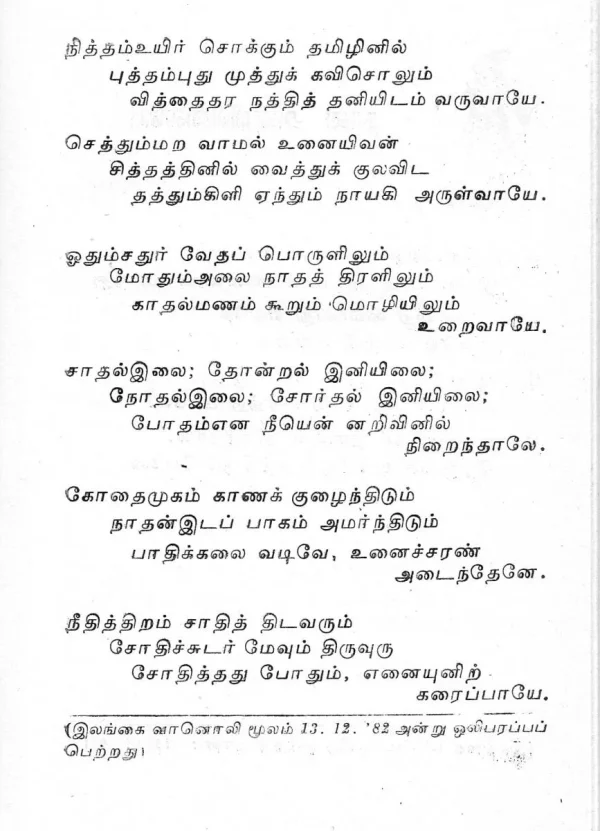 நித்தம்உயிர் சொக்கும் தமிழினில்
புத்தம்புது முத்துக் கவிசொலும்
வித்தைதர நத்தித் தனியிடம் வருவாயே.
செத்தும்மற வாமல் உனையிவன்
சித்தத்தினில் வைத்துக் குலவிட
தத்தும்கிளி ஏந்தும் நாயகி அருள்வாயே.
ஓதும்சதுர் வேதப் பொருளிலும்
மோதும்அலை நாதத் திரளிலும்
காதல்மணம் கூறும் மொழியிலும்
உறைவாயே.
சாதல்இலை; தோன்றல் இனியிலை;
நோதல்இலை; சோர்தல் இனியிலை;
போதம்என நீயென் னறிவினில்
நிறைந்தாலே.
கோதைமுகம் காணக் குழைந்திடும்
நாதன்இடப் பாகம் அமர்ந்திடும்
பாதிக்கலை வடிவே, உனைச்சரண்
அடைந்தேனே.
நீதித்திறம் சாதித் திடவரும்
சோதிச்சுடர் மேவும் திருவுரு
சோதித்தது போதும், எனையுனிற்
கரைப்பாயே.
(இலங்கை வானொலி மூலம் 13. 12. '82 அன்று ஒலிபரப்பப்
பெற்றது)